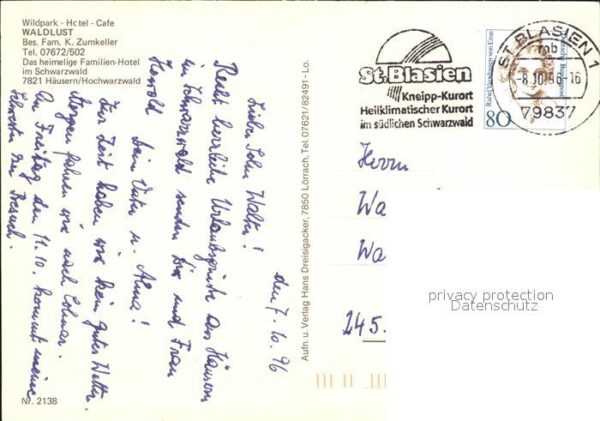 Wildpark - Hotel - Cafe
WALDLUST
Bes. Fam. K. Zumkeller
Tel. 07672/502
Das heimelige Familien-Hotel
im Schwarzwald
7821 Häusern/Hochwarzwald
den 7.10.96
Lieber Sohn Walter!
Recht herzliche Urlaubsgrüße aus Häusern
im Schwarzwald senden Dir und Frau
Harold Dein Vater u. Alma!
Zur Zeit haben wir kein gutes Wetter.
Morgen fahren wir nach Colmar.
Am Freitag den 11.10. kommt meine
Schwester zu Besuch.
Nr. 2138
Aufn. u. Verlag Hans Dreisigacker, 7850 Lörrach, Tel. 07621/82491 - Lo.
St. Blasien
Kneipp-Kurort
Heilklimatischer Kurort
im südlichen Schwarzwald
80
ST BLASIEN 1
mb
-8.10.96-16
79837
Herrn
Wa
Wa
245.
privacy protection
Datenschutz